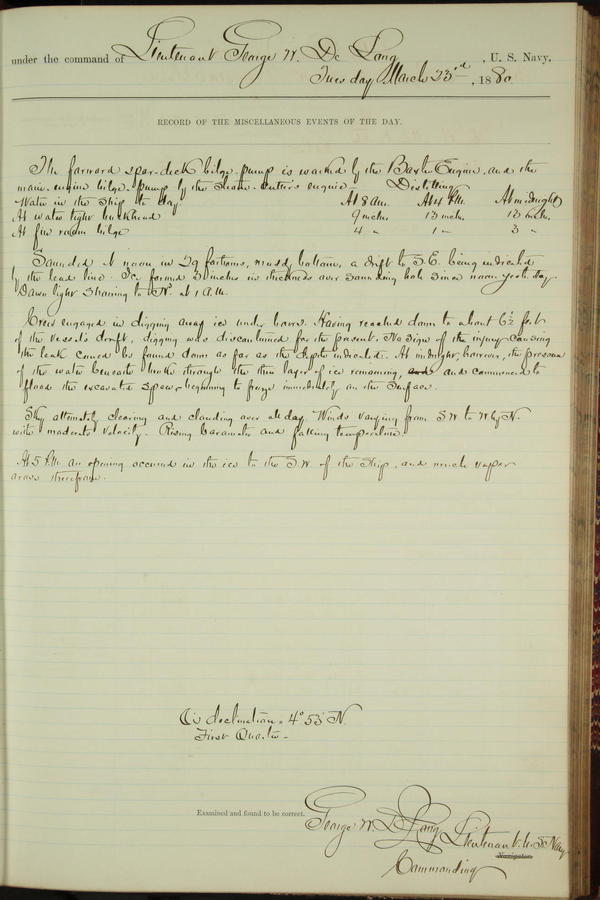 under the command of Lieutenant George W. De Long, U. S. Navy.
Tuesday March 23rd, 1880
RECORD OF THE MISCELLANEOUS EVENTS OF THE DAY.
The forward spar-deck bilge-pump is worked by the Baxter Engine, and the
main-engine bilge-pump by the steam-cutter's engine. Distilling.
Water in the ship to day At 8 am. At 4 P.M. At midnight
At water tight bulkhead 9 inches. 13 inch. 13 inches.
At fire room bilge 4 " 1 " 3 "
Sounded at noon in 29 fathoms, muddy bottom, a drift to S.E. being indicated
by the lead line. Ice formed 3 inches in thickness over sounding hole since noon yesterday
Dawn light showing to N. at 1 A.M.
Crew engaged in digging away ice under bows. Having reached down to about 6½ feet
of the vessel's draft, digging was discontinued for the present. No sign of the injury causing
the leak could be found down as far as the depth indicated. At midnight, however, the pressure
of the water beneath broke through the thin layer of ice remaining, and commenced to
flood the excavated space, beginning to freeze immediately on the surface.
Sky alternately clearing and clouding over all day. Winds varying from S.W. to W by N.
with moderate velocity. Rising barometer and falling temperature.
At 5 P.M. an opening occurred in the ice to the S.W. of the Ship, and much vapor
arose therefrom.
declination = 4° 53' N.
First Quarter.
Examined and found to be correct.
George W. De Long Lieutenant U.S. Navy
Navigator.
Commanding